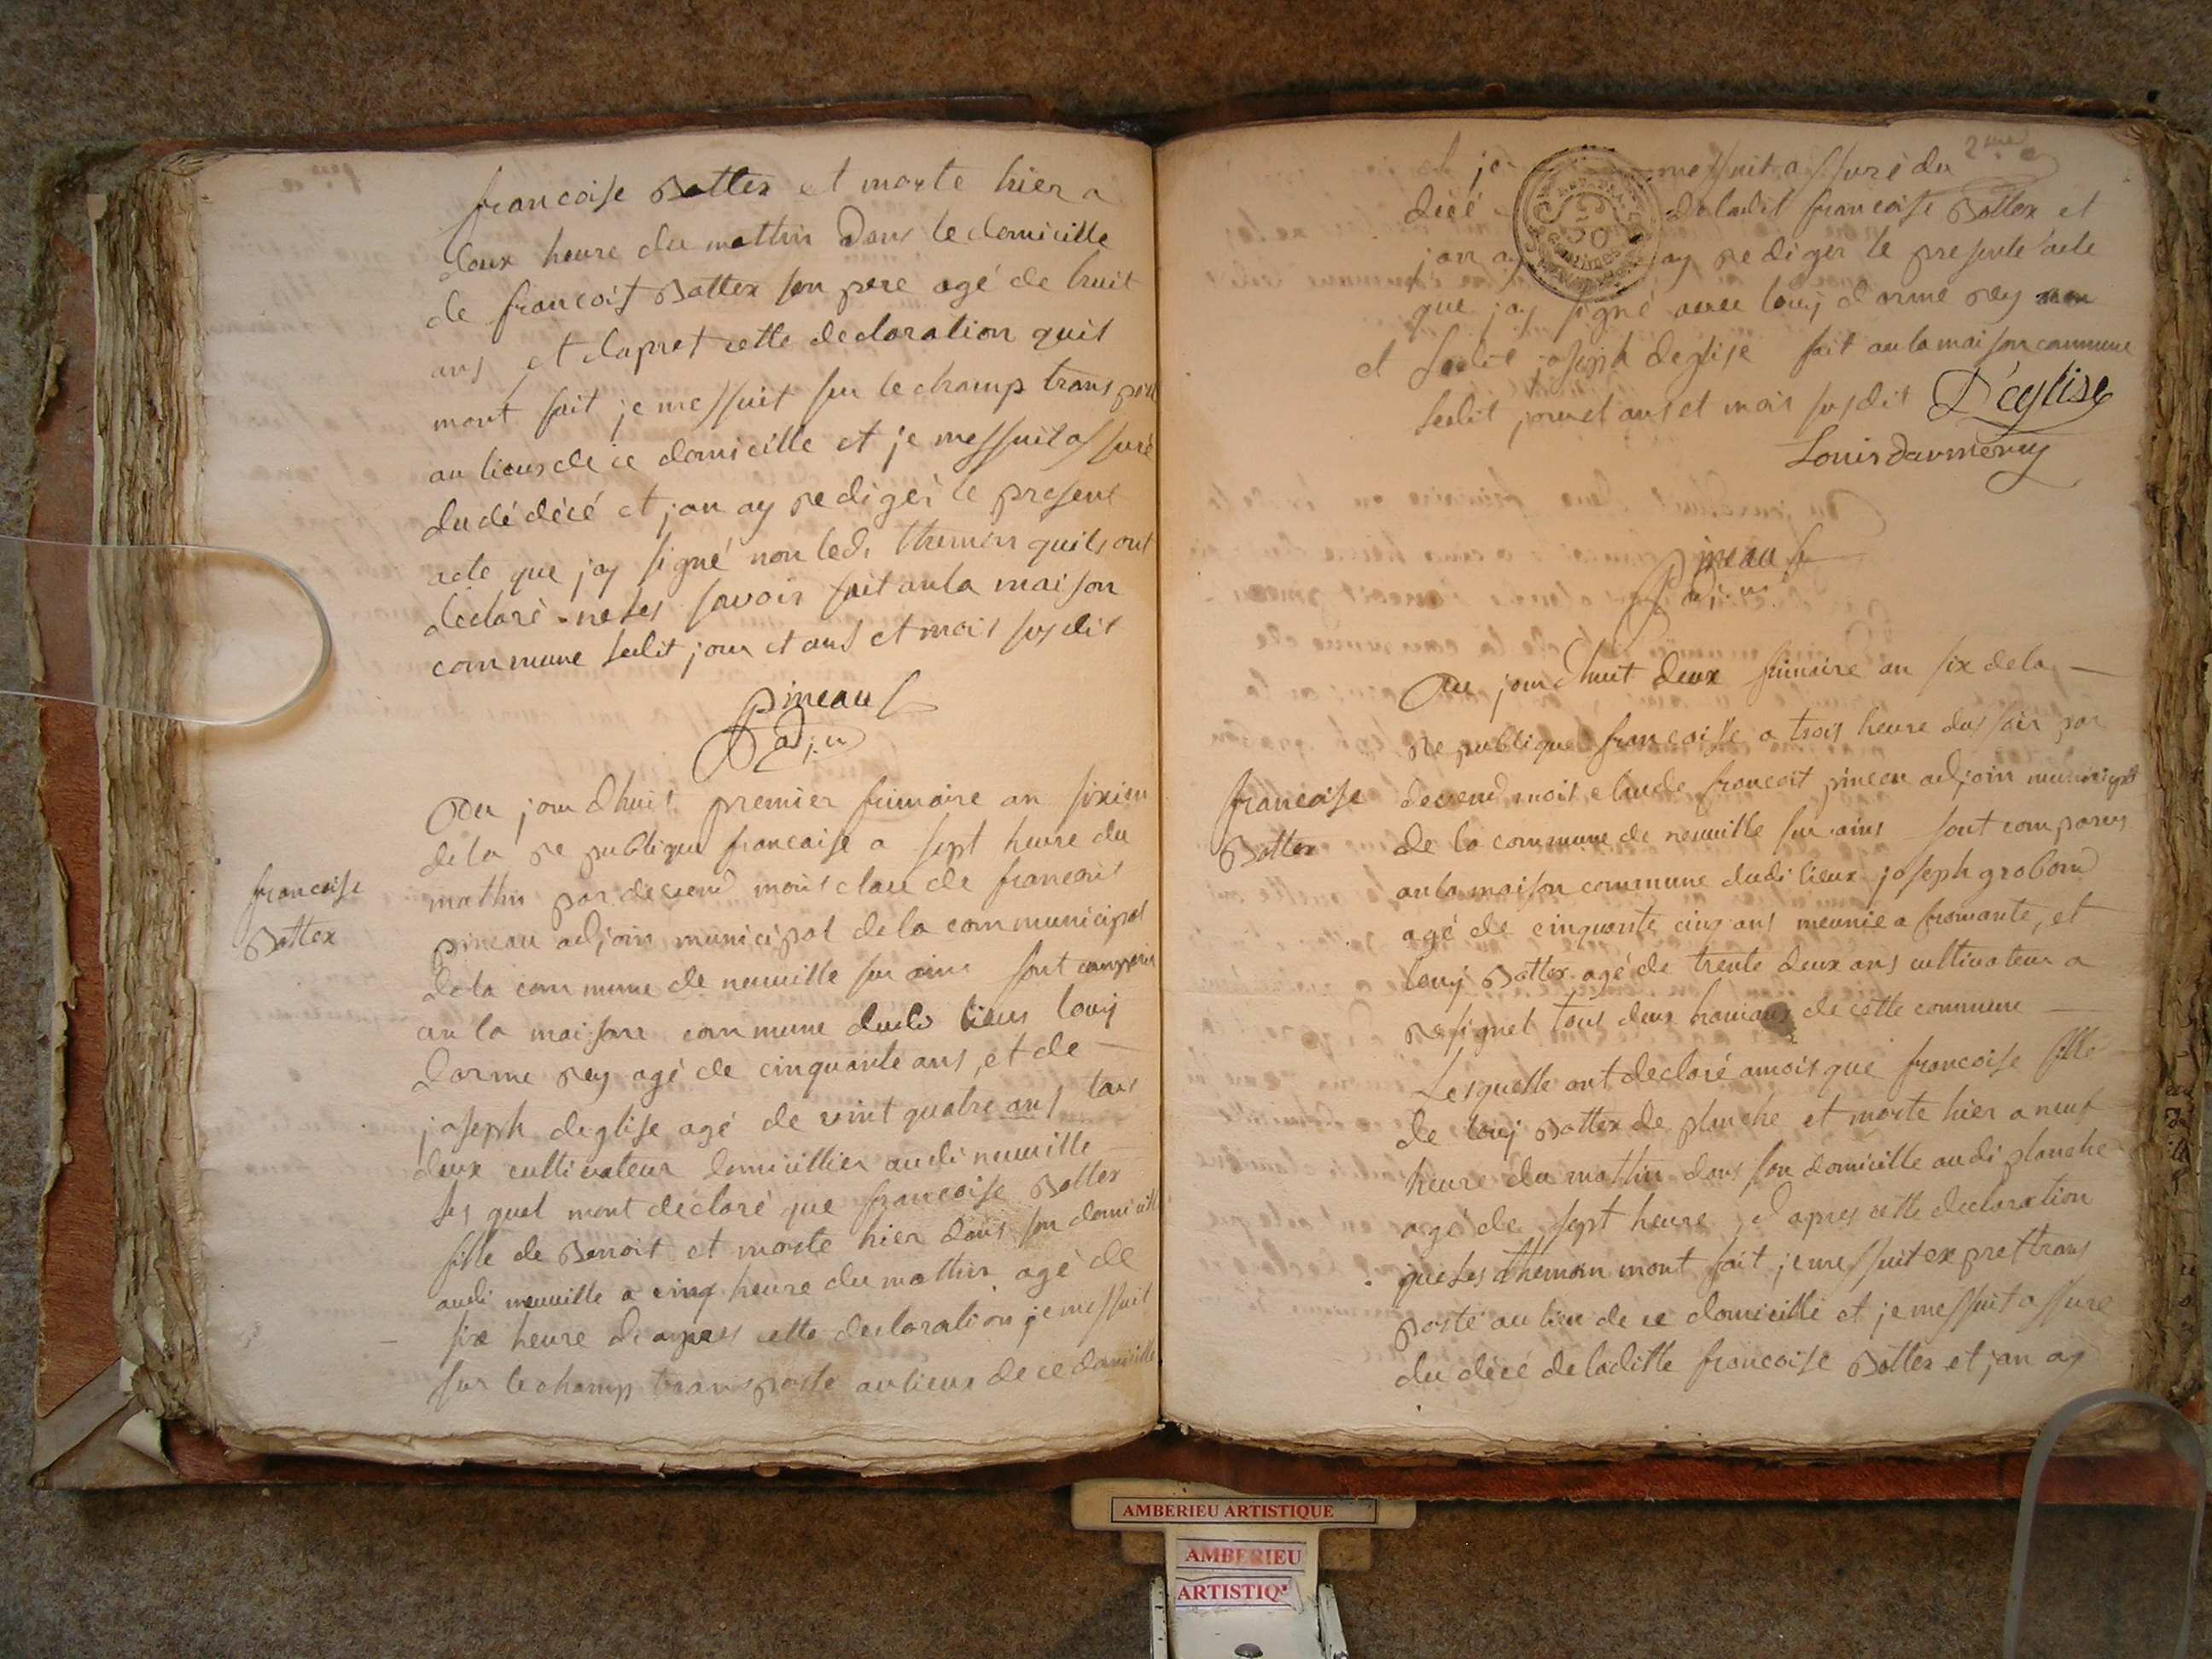 francoise Battex et morte hier a
deux heure du mathin dans le domicille
de francoist Battex son pere agé de huit
ans et dapret cette declaration quil
mont fait je messuit sur le champ trans porte
au lieux de ce domicille et je messuit assuré
du dé décé et jan ay rediger le present
acte que jay signé non ledi themoin quils ont
declaré ne les savoir fait anla maison
commune ledit jour et ans et mois susdit
Pineau
adj.
francoise
Battex
Au jour dhuit premier frimaire an sixiem
dela republique francaise a sept heure du
mathin par devend mois claude francois
pineau adjoin municipal dela communicipal
dela commune de neuville sur ains sont comparus
an la maisons commune dudi lieus louij
darme rey agé de cinquante ans, et de
joseph deglise agé de vint quatre ans tous
deux cultivateur domicillier audi neuville
les quel mont declaré que francoise Battex
fille de Benoit et morte hier dans son domicille
audi neuville a cinq heure du mathin agé de
six heure d apres cette declaration je messuit
sur le champ transporte au lieux de ce domicille
2me
et je messuit assuré du
décé de ladit francoise Battex et
jan ay ay rediger le presente acte
que jay signé avec louij darme rey
et ledit joseph deglise fait anla maison commune
ledit jour et ans et mois susdit D'eglise
Louis darmerey
Pineau
adj.
50
centimes
francoise
Battex
Au jour dhuit deux frimaire an six dela
republique francoisse a trois heure dus soir par
devend mois claude francoit pineau adjoin municipal
de la commune de neuville sur ains sont comparus
anla maison commune dudi lieux joseph grobond
agé de cinquante cinq ans meunie a fromante, et
louij Battex agé de trente deux ans cultivateur a
resignet tous deux hamaux de cette commune
Lesquelle ont declaré amois que francoise fille
de louij Battex de planche et morte hier a neuf
heure du mathin dans son domicille audi planche
agé de sept heure, d apres cette declaration
que les themoin mont fait je me suit ex pret trans
porté au lieu de ce domicille et je messuit assure
du décé de laditte francoise Battex et jan ay
AMBERIEU ARTISTIQUE
AMBERIEU
ARTISTIQ